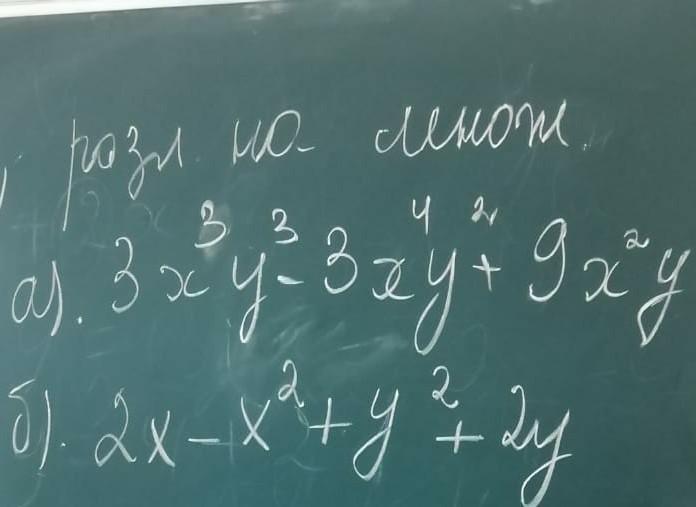 ) разл. на множ.
а). 3x³y³ - 3x⁴y² + 9x²y
б). 2x - x² + y² + 2y